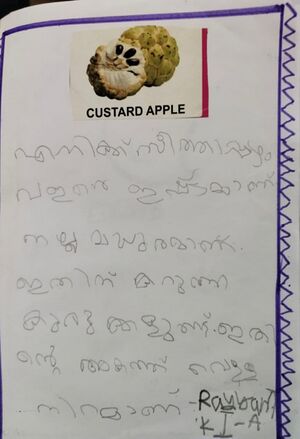 CUSTARD APPLE
എനിക്ക് സീതാപ്പഴം
വളരെ ഇഷ്ടമാണ്
നല്ല മധുരമാണ്.
ഇതിന് കറുത്ത
കുരുക്കളുണ്ട്. ഇതി
ന്റെ അകത്ത് വെള്ള
നിറമാണ്
K I-A